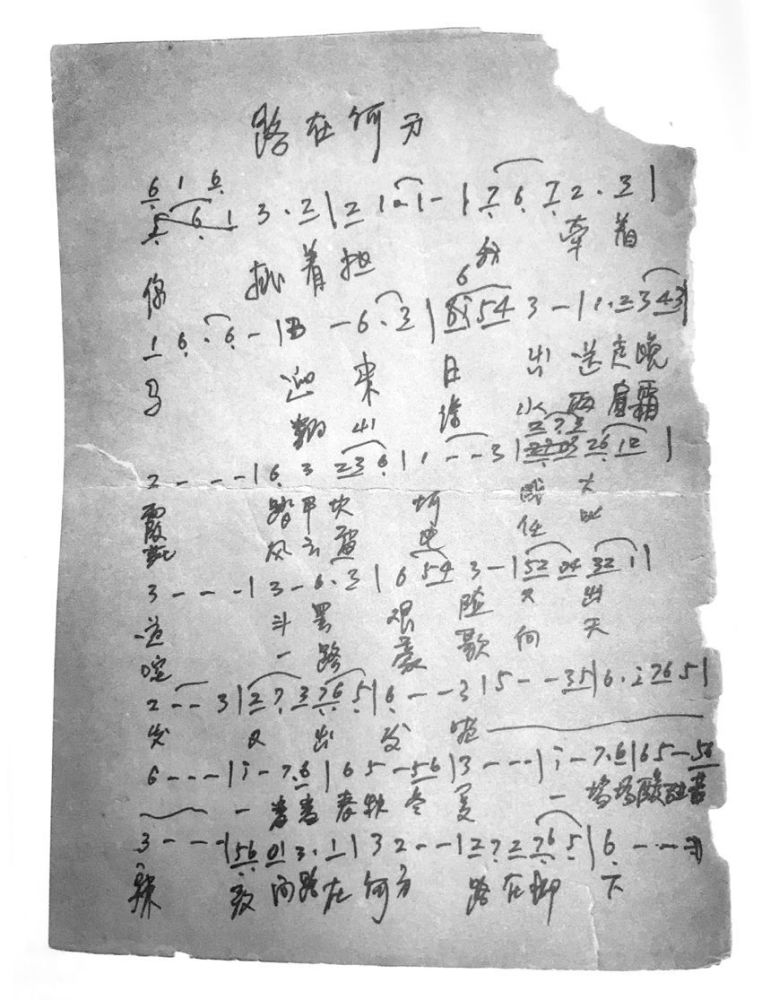 路在何方
6 1 6
5 6 1 3 · 2 | 2 1 2 1 - | 7 6 7 2 · 3 |
你 挑着担 我 牵着
6
1 6 · 6 - | 3 - 6 · 3 | 6 i 5 4 3 - | 1 · 2 3 4 3 |
马 迎来日出 送走晚
翻山涉水 两肩霜
2 7 3
2 - - - | 6 3 2 3 6 | 1 - - 3 | 2 6 1 2 |
霞 踏平坎坷 成大
花 风云雷电 任叱
3 - - - | 3 - 6 · 3 | 6 5 4 3 - | 5 2 0 4 3 2 1 |
道 斗罢艰险 又出
咤 一路豪歌 向天
2 - - 3 | 2 7 3 7 6 5 | 6 - - 3 | 5 - - 3 5 | 6 · i 7 6 5 |
发 又出发 啦
6 - - - | i - 7 · 6 | 6 5 - 5 6 | 3 - - - | i - 7 · 6 | 6 5 - 5 6
一番番春秋冬夏 一场场酸甜苦
3 - - - | 5 6 0 1 3 · 1 | 3 2 - - | 2 7 2 7 6 5 | 6 - - -
辣 敢问路在何方 路在脚下